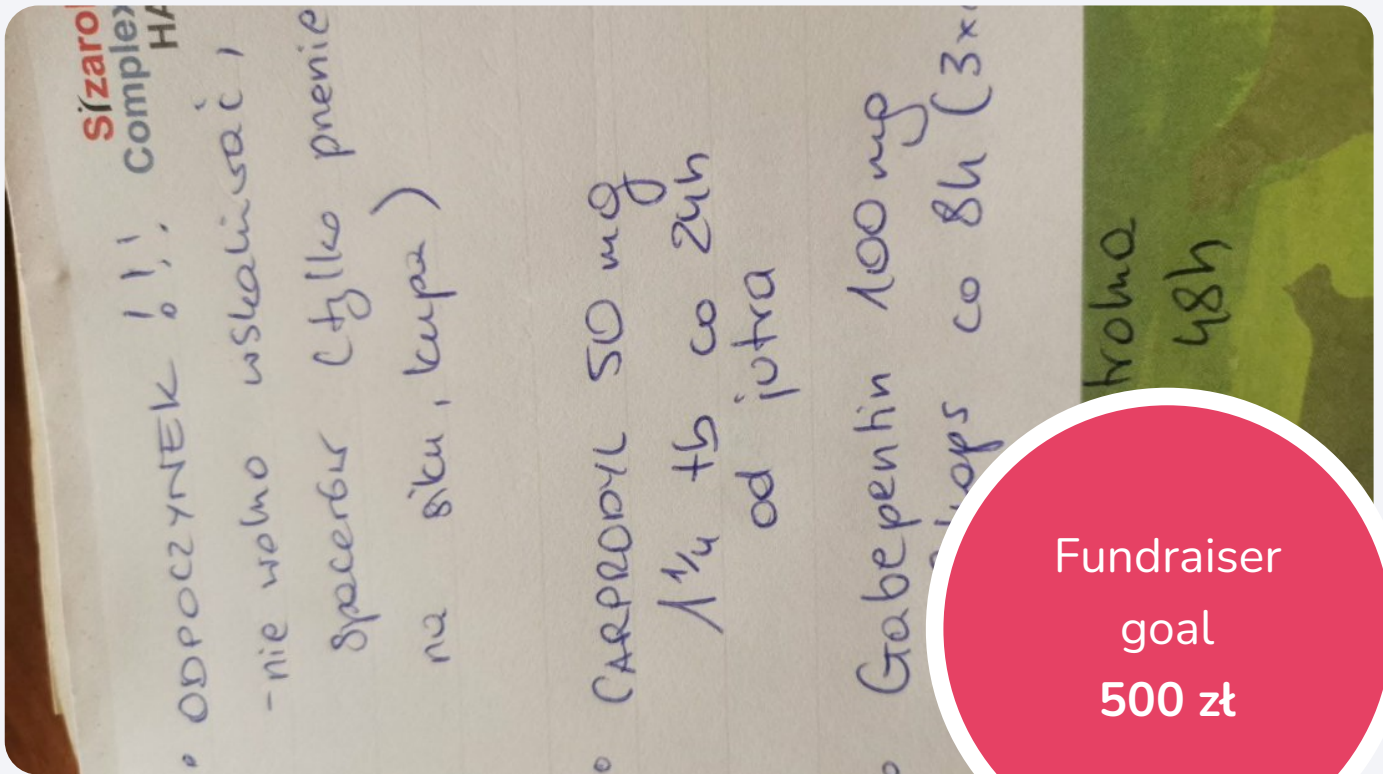 Sizarol
Complex
HA
• ODPOCZYNEK !!!
-nie wolno wskakiwać,
spacerów (tylko pnenie
na siku, kupa)
• CARPRODYL 50 mg
1 1/4 tb co 24h
od jutra
• Gabepentin 100 mg
kaps co 8h (3x
48h
Fundraiser
goal
500 zł